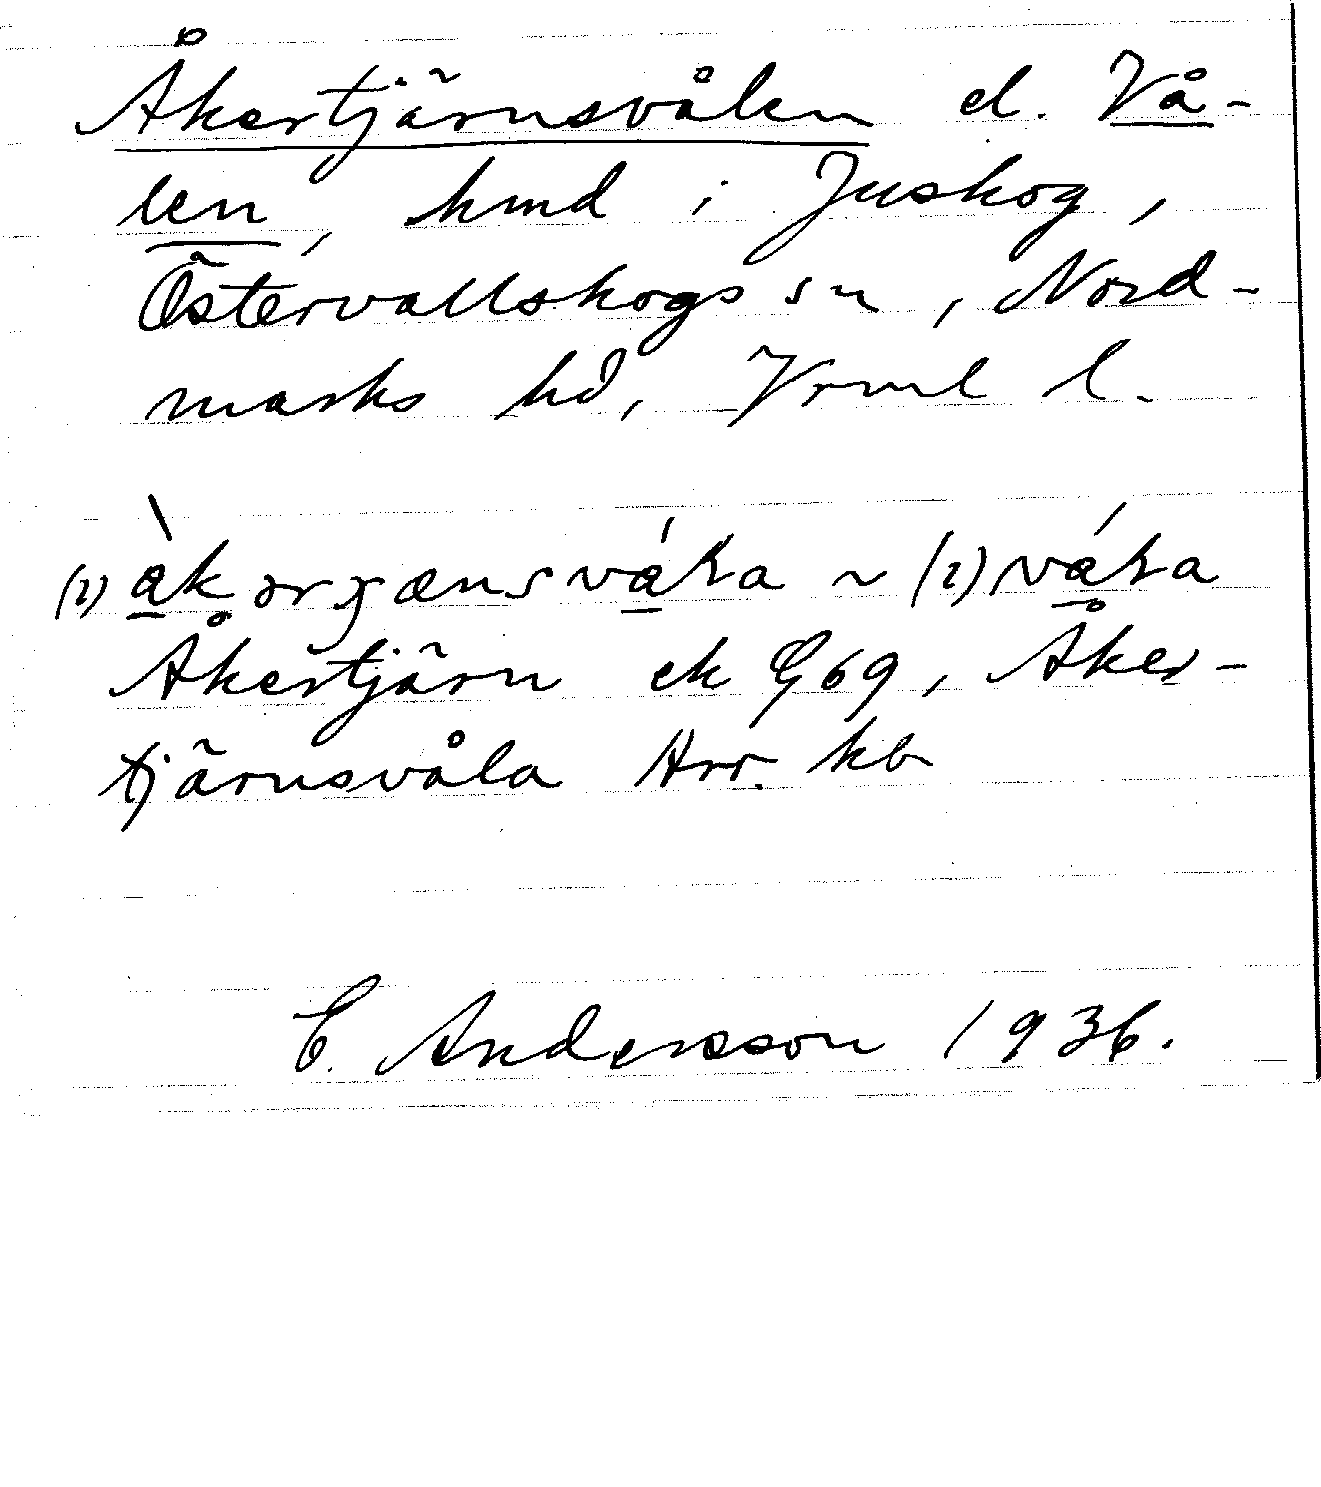 Åkertjärnsvålen el. Vå-
len, hmd i Juskog,
Östervallskogs sn, Nord-
marks hd, Vrml l.
(i) ~ (i)
Åkertjärn ek G69, Åker-
tjärnsvåla Arr. kb
E. Andersson 1936.